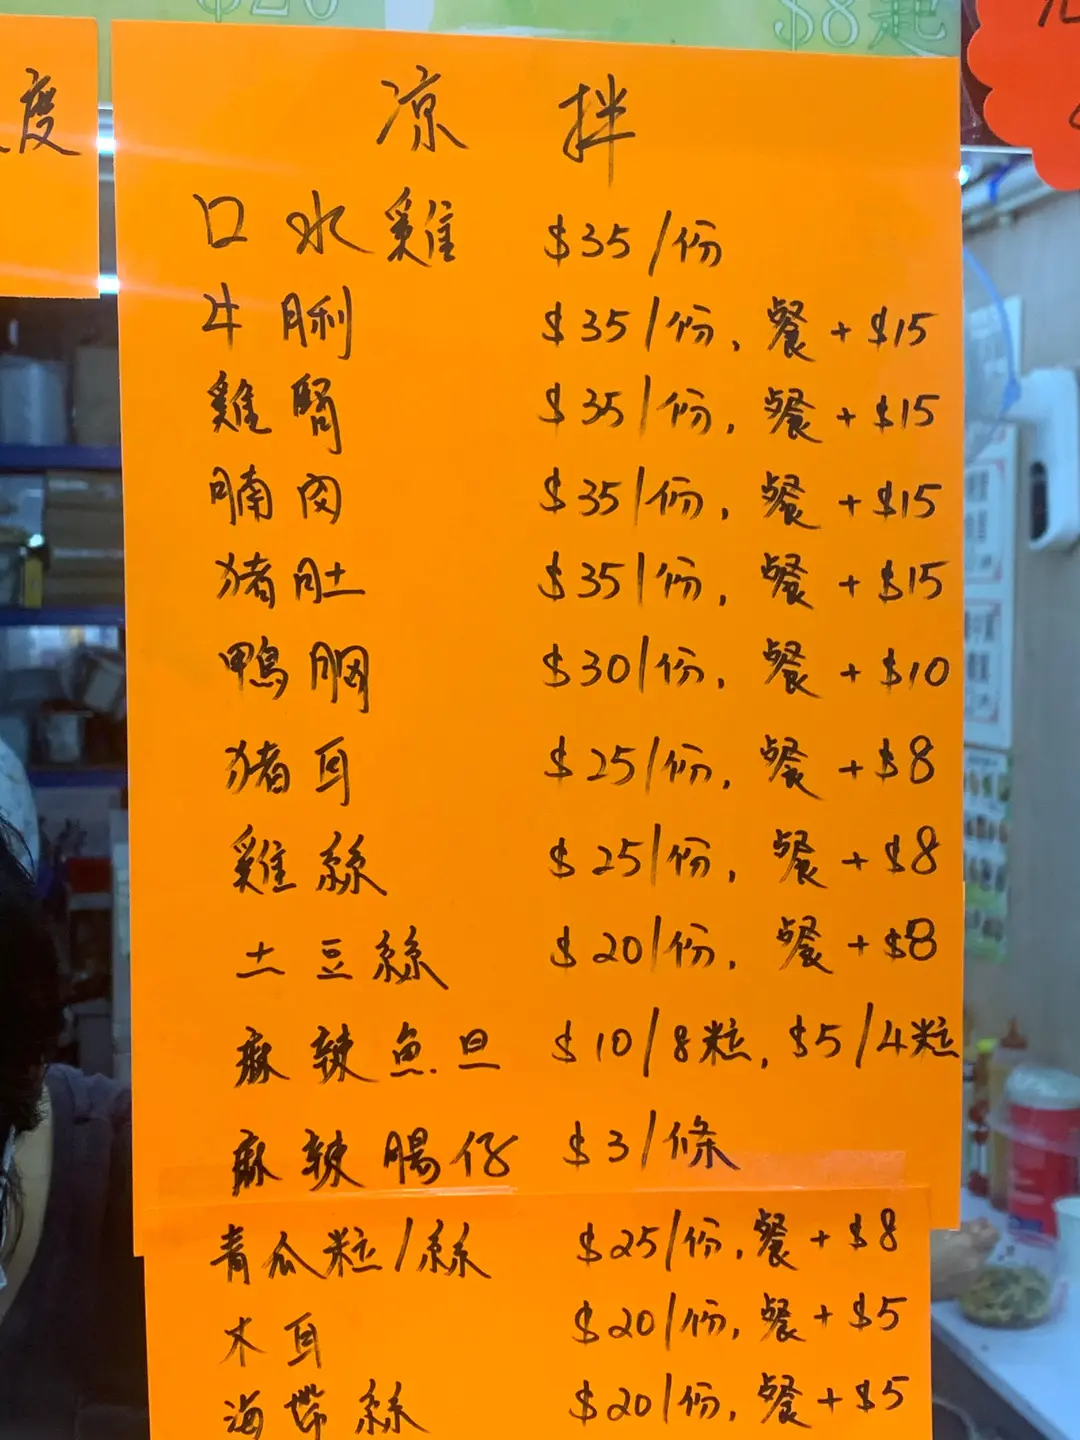 $20
$8起
度
凉 拌
口水雞 $35/份
牛脷 $35/份, 餐+$15
雞腎 $35/份, 餐+$15
腩肉 $35/份, 餐+$15
猪肚 $35/份, 餐+$15
鴨胴 $30/份, 餐+$10
猪耳 $25/份, 餐+$8
雞絲 $25/份, 餐+$8
土豆絲 $20/份, 餐+$8
麻辣魚旦 $10/8粒, $5/4粒
麻辣腸仔 $3/條
青瓜粒/絲 $25/份, 餐+$8
木耳 $20/份, 餐+$5
海帶絲 $20/份, 餐+$5